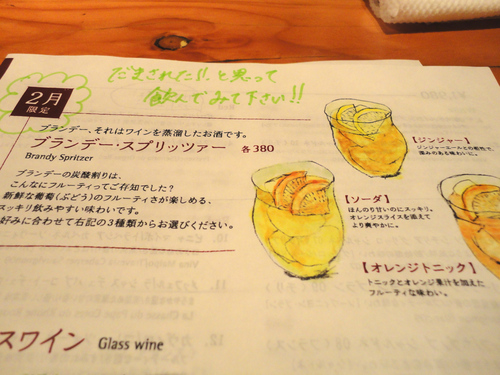 だまされた!! と思って
飲んでみて下さい!!
2月
限定
ブランデー、それはワインを蒸溜したお酒です。
ブランデー・スプリッツァー 各380
Brandy Spritzer
ブランデーの炭酸割りは、
こんなにフルーティってご存知でした?
新鮮な葡萄(ぶどう)のフルーティさが楽しめる、
スッキリ飲みやすい味わいです。
好みに合わせて右記の3種類からお選びください。
【ジンジャー】
ジンジャーエールとの相性で、
深みのある味わいに。
【ソーダ】
ほんのり甘いのにスッキリ。
オレンジスライスを添えて
より爽やかに。
【オレンジトニック】
トニックとオレンジ果汁を加えた
フルーティな味わい。
スワイン Glass wine